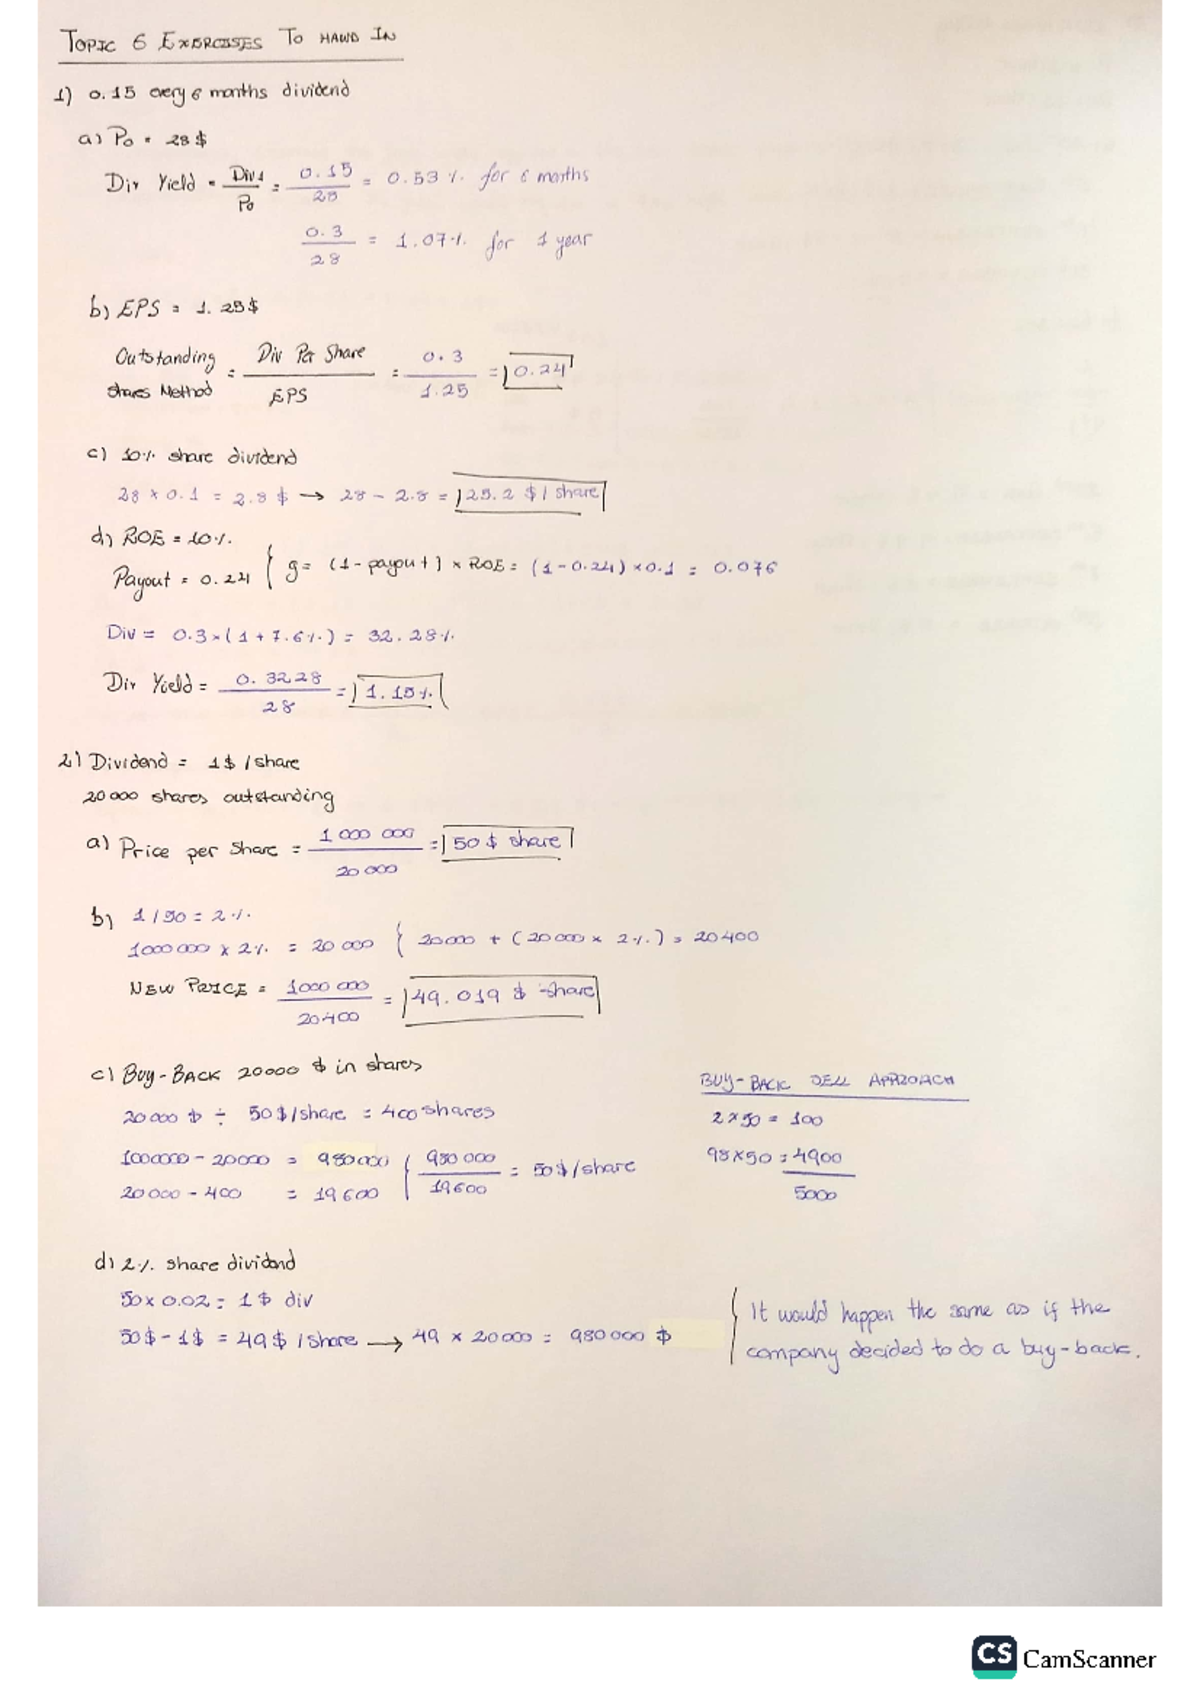 TOPIC 6 EXERCISES TO HAND IN
1) 0.15 every 6 months dividend
a) Po = 28$
Div Yield = Div1 / Po = 0.15 / 28 = 0.53 % for 6 months
0.3 / 28 = 1.07 % for 1 year
b) EPS = 1.25$
Outstanding Shares Method = Div Per Share / EPS = 0.3 / 1.25 = 0.24
c) 10% share dividend
28 x 0.1 = 2.8 $ → 28 - 2.8 = 25.2 $ / share
d) ROE = 10%.
Payout = 0.24 { g = (1 - payout) x ROE = (1 - 0.24) x 0.1 = 0.076
Div = 0.3 x (1 + 7.6%) = 32.28%
Div Yield = 0.3228 / 28 = 1.15%
2) Dividend = 1$ / share
20000 shares outstanding
a) Price per share = 1 000 000 / 20 000 = 50 $ share
b) 1 / 50 = 2%.
1000 000 x 2% = 20 000 { 20000 + (20000 x 2%) = 20400
NEW PRICE = 1000 000 / 20400 = 49.019 $ share
c) BUY-BACK 20000 $ in shares
20 000 $ ÷ 50$/share = 400 shares
1000000 - 20000 = 980000 { 980 000 / 19600 = 50$/share
20 000 - 400 = 19600
BUY-BACK DELL APPROACH
2 x 50 = 100
98 x 50 = 4900
5000
d) 2% share dividend
50 x 0.02 = 1 $ div
50$ - 1$ = 49$ / share → 49 x 20000 = 980000 $
{ It would happen the same as if the
company decided to do a buy-back.
CS CamScanner